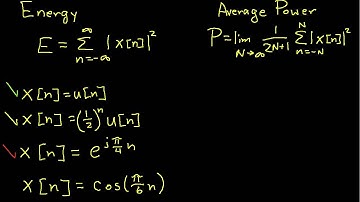 Energy
E = ∑_{n=-∞}^{∞} |x[n]|²
Average Power
P = lim_{N→∞} 1/(2N+1) ∑_{n=-N}^{N} |x[n]|²
x[n] = u[n]
x[n] = (1/2)^n u[n]
x[n] = e^{j π/4 n}
x[n] = cos(π/6 n)